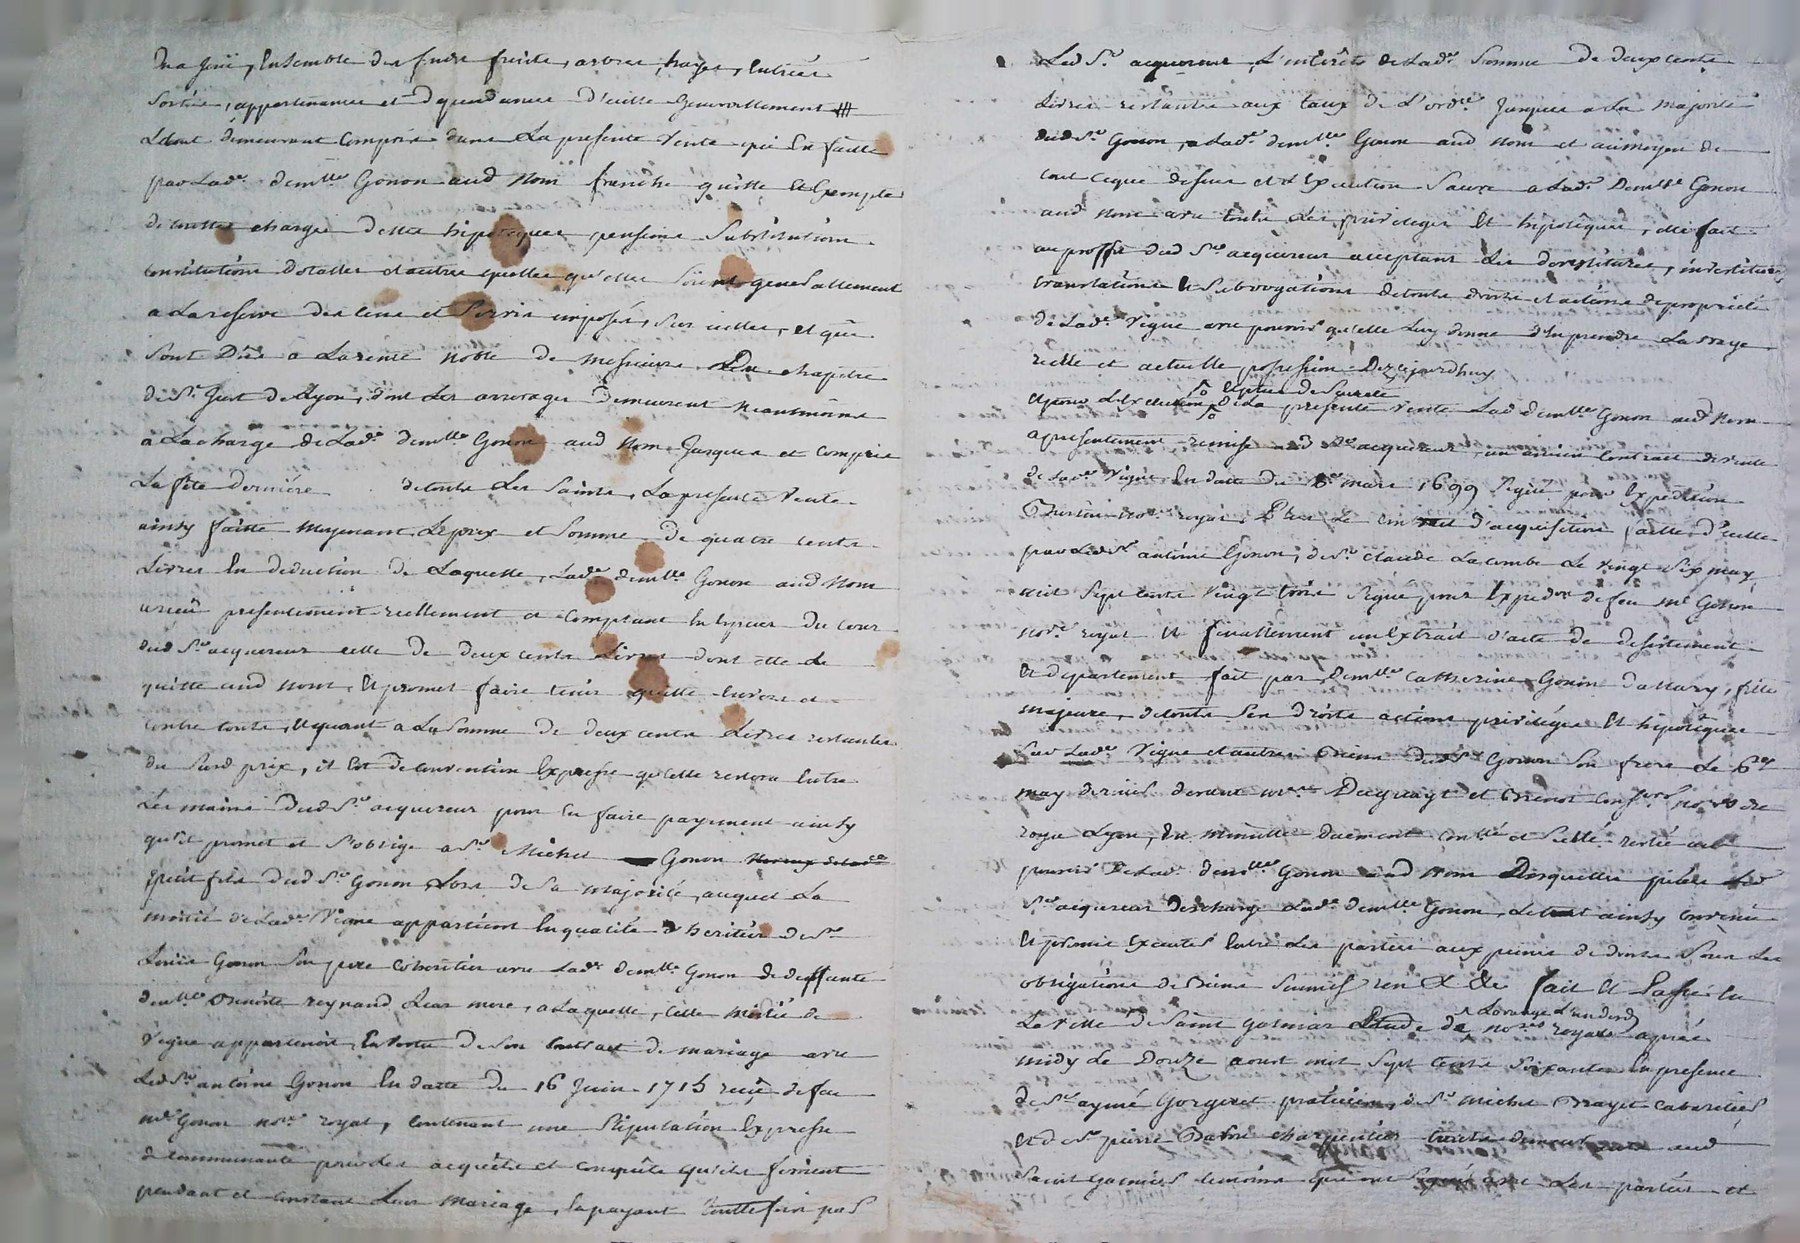 Ensemble des fruits, arbres, hayes, Entrées
Sorties, appartenances et dependances d'icelle Generallement
demeurant Compris dans La presente Vente qui En faitte
par Lade. demlle Gonon aud Nom franche quitte Et Exempte
de touttes charges dettes hipoteques pensions Substitutions
constitutions dotalles et autres quelles qu'elles Soient generallement
a La reserve des Cens et Servis imposés, Sur icelles, Et qui
Sont Dûs a La rente Noble de Messieurs Du chapitre
de St. Just de Lyon, dont Les arrerages Demeurent Neanmoins
a La charge de Lade. demlle Gonon aud Nom Jusques et Compris
La fête derniére de touts Les Saints, La presente Vente
ainsy faitte Moyenant Le prix et Somme De quatre cents
Livres En deduction de Laquelle, Lade. demlle Gonon aud Nom
presentement reellement et Comptant En Especes Du Cours
dud Sr. acquereur celle De Deux cents Livres dont elle Le
quitte aud Nom, Et promet faire tenir quitte Envers et
Contre touts, Et quant a La Somme De deux cents Livres restantes
du Susd prix, il Est De Convention Expresse qu'elle restera Entre
Les mains Dud Sr. acquereur pour En faire payement ainsy
qu'il promet et S'oblige a Sr. Michel Gonon
petit fils Dud Sr. Gonon Lors de Sa Majorité, auquel La
moitié de Lade. Vigne appartient En qualité d'heritier De Sr.
Gonon Son pere Coheritier avec Lade. demlle Gonon de deffunte
demlle reynaud Leur mere, a Laquelle, Cette Moitié de
Vigne appartenoit, En vertu De Son Contract de Mariage avec
Led Sr. antoine Gonon En datte du 16 Juin 1715 reçû de feu
me Gonon nore. royal, Contenant une Stipulation Expresse
de Communauté acquêts et Conquêts qu'ils feroient
pendant et Constant Leur Mariage, touttefois pas
Led Sr. acquereur, L'interêts de Lade. Somme De deux cents
Livres restantes aux taux de L'ordce. Jusques a La Majorité
dud Sr. Gonon, a Lade. demlle Gonon aud Nom et aumoyen de
tout Ceque dessus et d'Execution Sauve a Lade. Demlle Gonon
aud Nom avec touts Les privileges Et hipoteques, elle fait
au proffit dud Sr. acquereur acceptant Les devestitures, investitures
translations Et Subrogations de touts droits et actions de proprieté
de Lade. Vigne avec pouvoir qu'elle Luy donne d'En prendre La vraye
reelle et actuelle possession Dez aujourdhuy
Et pour L'Execution De La presente Vente Lade demlle Gonon aud Nom
a presentement remise aud Sr. acquereur, un ancien Contract de Vente
de Lade. Vigne En datte Du mars 1699 Signé pour Expedition
nore. royal, Plus Le Contract d'acquisition faitte d'icelle
par Led Sr. antoine Gonon, de Sr. Claude La Combe Le Vingt Six may
mil Sept Cents Vingt trois Signé pour Expedon de feu me Gonon
nore. royal Et finallement un Extrait d'acte De desistement
Et departement fait par Demlle Catherine Gonon Dallary, fille
majeure, de touts Ses droits actions privileges Et hipoteques
Sur Lade. Vigne et autres Biens dud Sr. Gonon Son frere Le
may dernier devant et Consers nores. de
roya Lyon, En Minutte duement Conllé et Sellé resté au
pouvoir De Lad. demlle Gonon aud Nom Desquelles pièces Led
Sr. acquereur Descharge Lade. demlle Gonon, Le tout ainsy Convenû
Et promis Executer Entre Les parties aux peines de droits Sous Les
obligations de Biens Soumis ren & Fait Et Passé En
La Ville De Saint galmier Etude De nores royaux après
midy Le Douze aoust mil Sept Cents Soixante En presence
de Sr. aymé Gorgeret praticien, de Sr. michel Brayet Cabaretier
Et de Sr. pierre charpentier aud
Saint galmier témoins qui ont Signés avec Les parties et